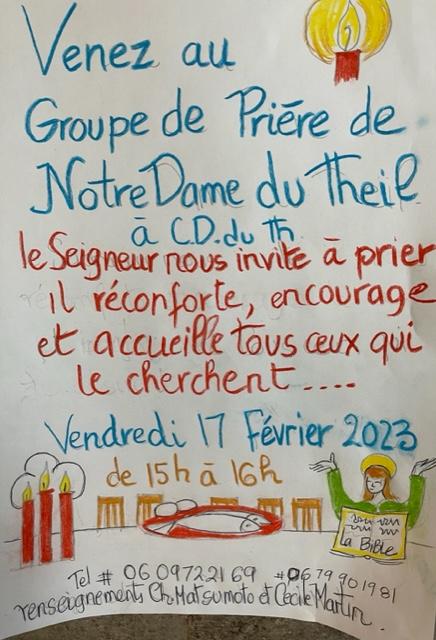 Venez au
Groupe de Prière de
Notre Dame du Theil
à C.D. du Th
le Seigneur nous invite à prier
il réconforte, encourage
et accueille tous ceux qui
le cherchent....
Vendredi 17 Février 2023
de 15h à 16h
la Bible
Tel # 06 09 72 21 69 # 06 79 90 19 81
renseignements Ch. Matsumoto et Cécile Martin.